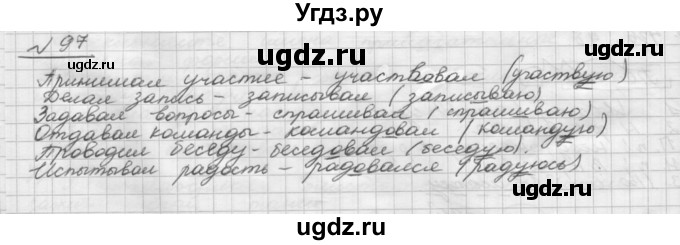 Угдз.ру
№ 97
ugdz.ru ugdz.ru
Принимал участие - участвовал (участвую)
Делал запись - записывал (записываю)
Задавал вопросы - спрашивал (спрашиваю)
Отдавал команды - командовал (командую)
Проводил беседу - беседовал (беседую).
Испытывал радость - радовался (радуюсь).
ugdz.ru ugdz.ru
ugdz.ru ugdz.ru